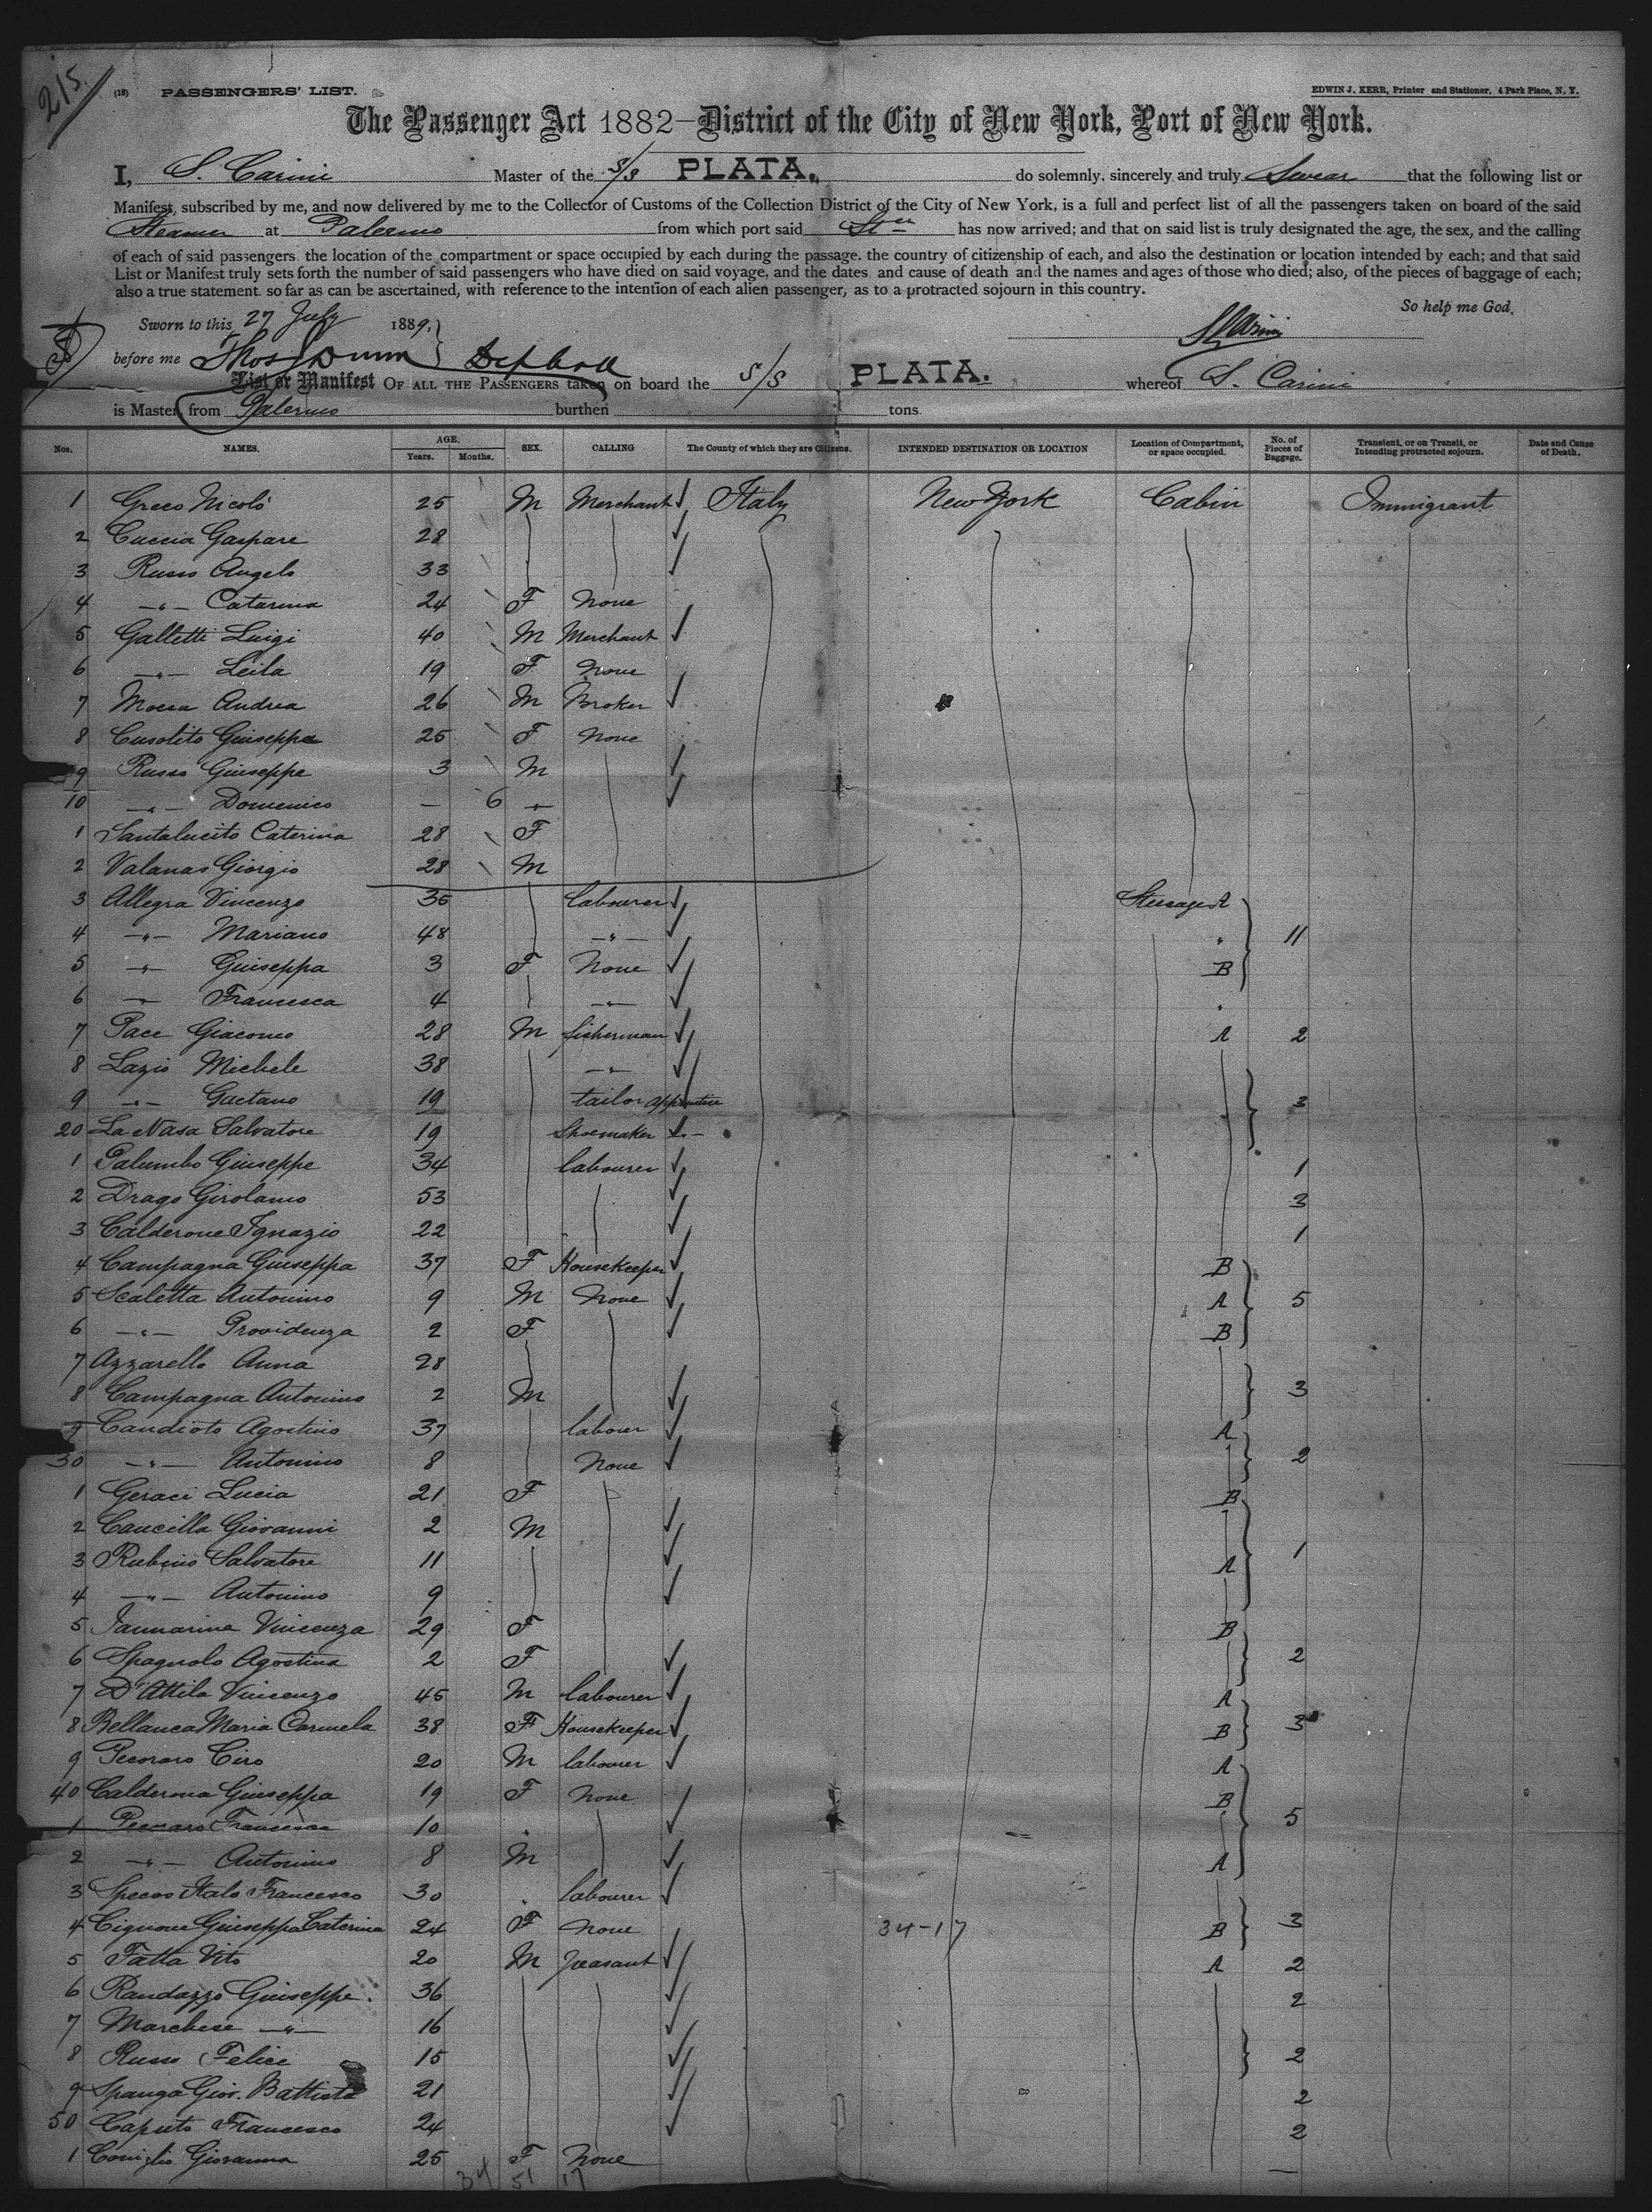 215.
(18) PASSENGERS' LIST.
EDWIN J. KERR, Printer and Stationer, 4 Park Place, N. Y.
The Passenger Act 1882—District of the City of New York, Port of New York.
I, S. Carini Master of the S/S PLATA. do solemnly, sincerely and truly Swear that the following list or
Manifest, subscribed by me, and now delivered by me to the Collector of Customs of the Collection District of the City of New York, is a full and perfect list of all the passengers taken on board of the said
Steamer at Palermo from which port said Str has now arrived; and that on said list is truly designated the age, the sex, and the calling
of each of said passengers. the location of the compartment or space occupied by each during the passage. the country of citizenship of each, and also the destination or location intended by each; and that said
List or Manifest truly sets forth the number of said passengers who have died on said voyage, and the dates and cause of death and the names and ages of those who died; also, of the pieces of baggage of each;
also a true statement. so far as can be ascertained, with reference to the intention of each alien passenger, as to a protracted sojourn in this country.
So help me God.
Sworn to this 27 July 1889,
S Carini
before me Thos J Dunn
List or Manifest OF ALL THE PASSENGERS taken on board the S/S PLATA. whereof S. Carini
is Master, from Palermo burthen tons.
Nos. NAMES. AGE. Years. Months. SEX. CALLING The County of which they are Citizens. INTENDED DESTINATION OR LOCATION Location of Compartment, or space occupied. No. of Pieces of Baggage. Transient, or on Transit, or Intending protracted sojourn. Date and Cause of Death.
1 Greco Nicolò 25 M Merchant Italy New York Cabin Immigrant
2 Cuccia Gaspare 28
3 Russo Angelo 33
4 -"- Catarina 24 F None
5 Galletti Luigi 40 M Merchant
6 -"- Leila 19 F None
7 Mocca Andrea 26 M Broker
8 Cusolito Giuseppa 25 F None
9 Russo Giuseppe 3 M
10 -"- Domenico — 6 -"-
1 Santalucito Caterina 28 F
2 Valanas Giorgio 28 M
3 Allegra Vincenzo 36 labourer Steerage A
4 -"- Mariano 48 -"- " 11
5 -"- Giuseppa 3 F None B
6 -"- Francesca 4 -"- "
7 Pace Giacomo 28 M fisherman A 2
8 Lazio Michele 38 -"-
9 -"- Gaetano 19 tailor apprentice 3
20 La Nasa Salvatore 19 Shoemaker
1 Palumbo Giuseppe 34 labourer 1
2 Drago Girolamo 53 3
3 Calderone Ignazio 22 1
4 Campagna Giuseppa 37 F Housekeeper B
5 Scaletta Antonino 9 M None A 5
6 -"- Providenza 2 F B
7 Azzarello Anna 28
8 Campagna Antonino 2 M 3
9 Candioto Agostino 37 labourer A
30 -"- Antonino 8 None 2
1 Geraci Lucia 21 F B
2 Cancilla Giovanni 2 M
3 Rubino Salvatore 11 A 1
4 -"- Antonino 9
5 Iannarina Vincenza 29 F B
6 Spagnolo Agostina 2 F 2
7 D'Attila Vincenzo 45 M labourer A
8 Bellanca Maria Carmela 38 F Housekeeper B 3
9 Pecoraro Ciro 20 M labourer A
40 Calderona Giuseppa 19 F None B
1 Pecoraro Francesca 10 " 5
2 -"- Antonino 8 M A
3 Italo Francesco 30 " labourer
4 Cignone Giuseppa Caterina 24 F None 34-17 B 3
5 Fatta Vito 20 M peasant A 2
6 Randazzo Giuseppe 36 2
7 Marchese -"- 16
8 Russo Felice 15 2
9 Spanga Giov. Battista 21 2
50 Caputo Francesco 24 2
1 Coniglio Giovanna 25 F None —
34 51 17